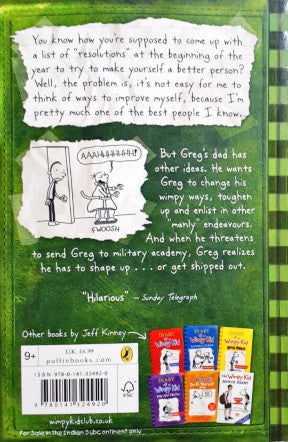 You know how you're supposed to come up with
a list of "resolutions" at the beginning of the
year to try to make yourself a better person?
Well, the problem is, it's not easy for me to
think of ways to improve myself, because I'm
pretty much one of the best people I know.
AAAHHHHHH!
FWOOSH
But Greg's dad has
other ideas. He wants
Greg to change his
wimpy ways, toughen
up and enlist in other
"manly" endeavours.
And when he threatens
to send Greg to military academy, Greg realizes
he has to shape up . . . or get shipped out.
"Hilarious" – Sunday Telegraph
Other books by Jeff Kinney
9+
U.K. £6.99
puffinbooks.com
ISBN 978-0-141-32492-0
9 780141 324920
FSC
DIARY of a Wimpy Kid
DIARY of a Wimpy Kid
DIARY of a Wimpy Kid
DIARY of a Wimpy Kid
THE UGLY TRUTH
Wimpy Kid
Do-It-Yourself
Wimpy Kid
MOVIE DIARY
wimpykidclub.co.uk
For Sale in the Indian Subcontinent only